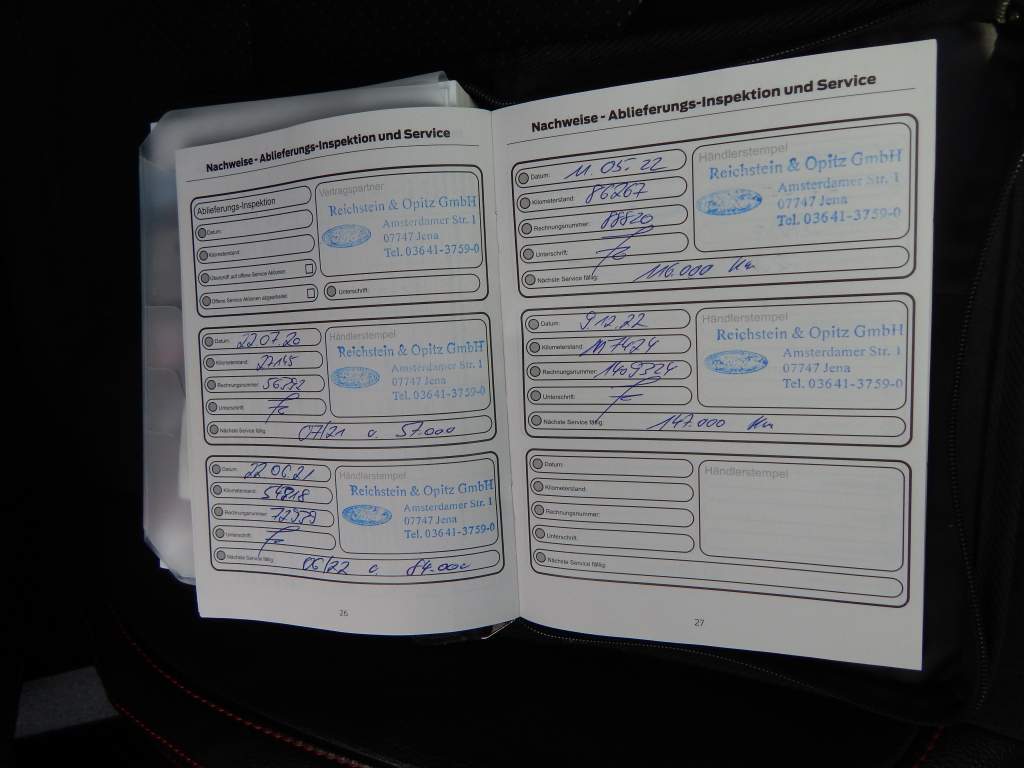 Nachweise - Ablieferungs-Inspektion und Service
Ablieferungs-Inspektion
Datum:
Kilometerstand:
Überprüft auf offene Service Aktionen
Offene Service Aktionen abgearbeitet
Vertragspartner
Reichstein & Opitz GmbH
Amsterdamer Str. 1
07747 Jena
Tel. 03641-3759-0
Unterschrift:
Datum: 22.07.20
Kilometerstand: 27145
Rechnungsnummer: 56792
Unterschrift:
Nächste Service fällig: 07/21 o. 57.000
Händlerstempel
Reichstein & Opitz GmbH
Amsterdamer Str. 1
07747 Jena
Tel. 03641-3759-0
Datum: 22.06.21
Kilometerstand: 54818
Rechnungsnummer:
Unterschrift:
Nächste Service fällig: 06/22 o. 84.000
Händlerstempel
Reichstein & Opitz GmbH
Amsterdamer Str. 1
07747 Jena
Tel. 03641-3759-0
26
Nachweise - Ablieferungs-Inspektion und Service
Datum: 11.05.22
Kilometerstand: 86267
Rechnungsnummer: 88820
Unterschrift:
Nächste Service fällig: 116.000 Km
Händlerstempel
Reichstein & Opitz GmbH
Amsterdamer Str. 1
07747 Jena
Tel. 03641-3759-0
Datum: 9.12.22
Kilometerstand: 117424
Rechnungsnummer: 1409324
Unterschrift:
Nächste Service fällig: 147.000 Km
Händlerstempel
Reichstein & Opitz GmbH
Amsterdamer Str. 1
07747 Jena
Tel. 03641-3759-0
Datum:
Kilometerstand:
Rechnungsnummer:
Unterschrift:
Nächste Service fällig:
Händlerstempel
27